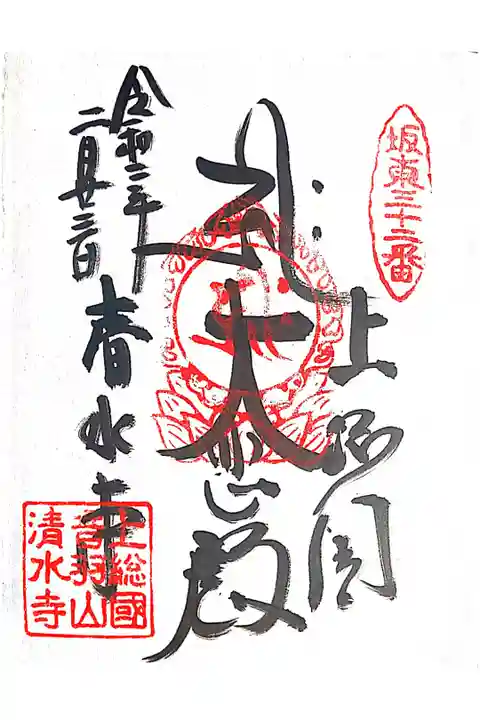 坂東三十二番
上総国
大悲殿
令和三年
二月廿三日
清水寺
上総國
音羽山
清水寺